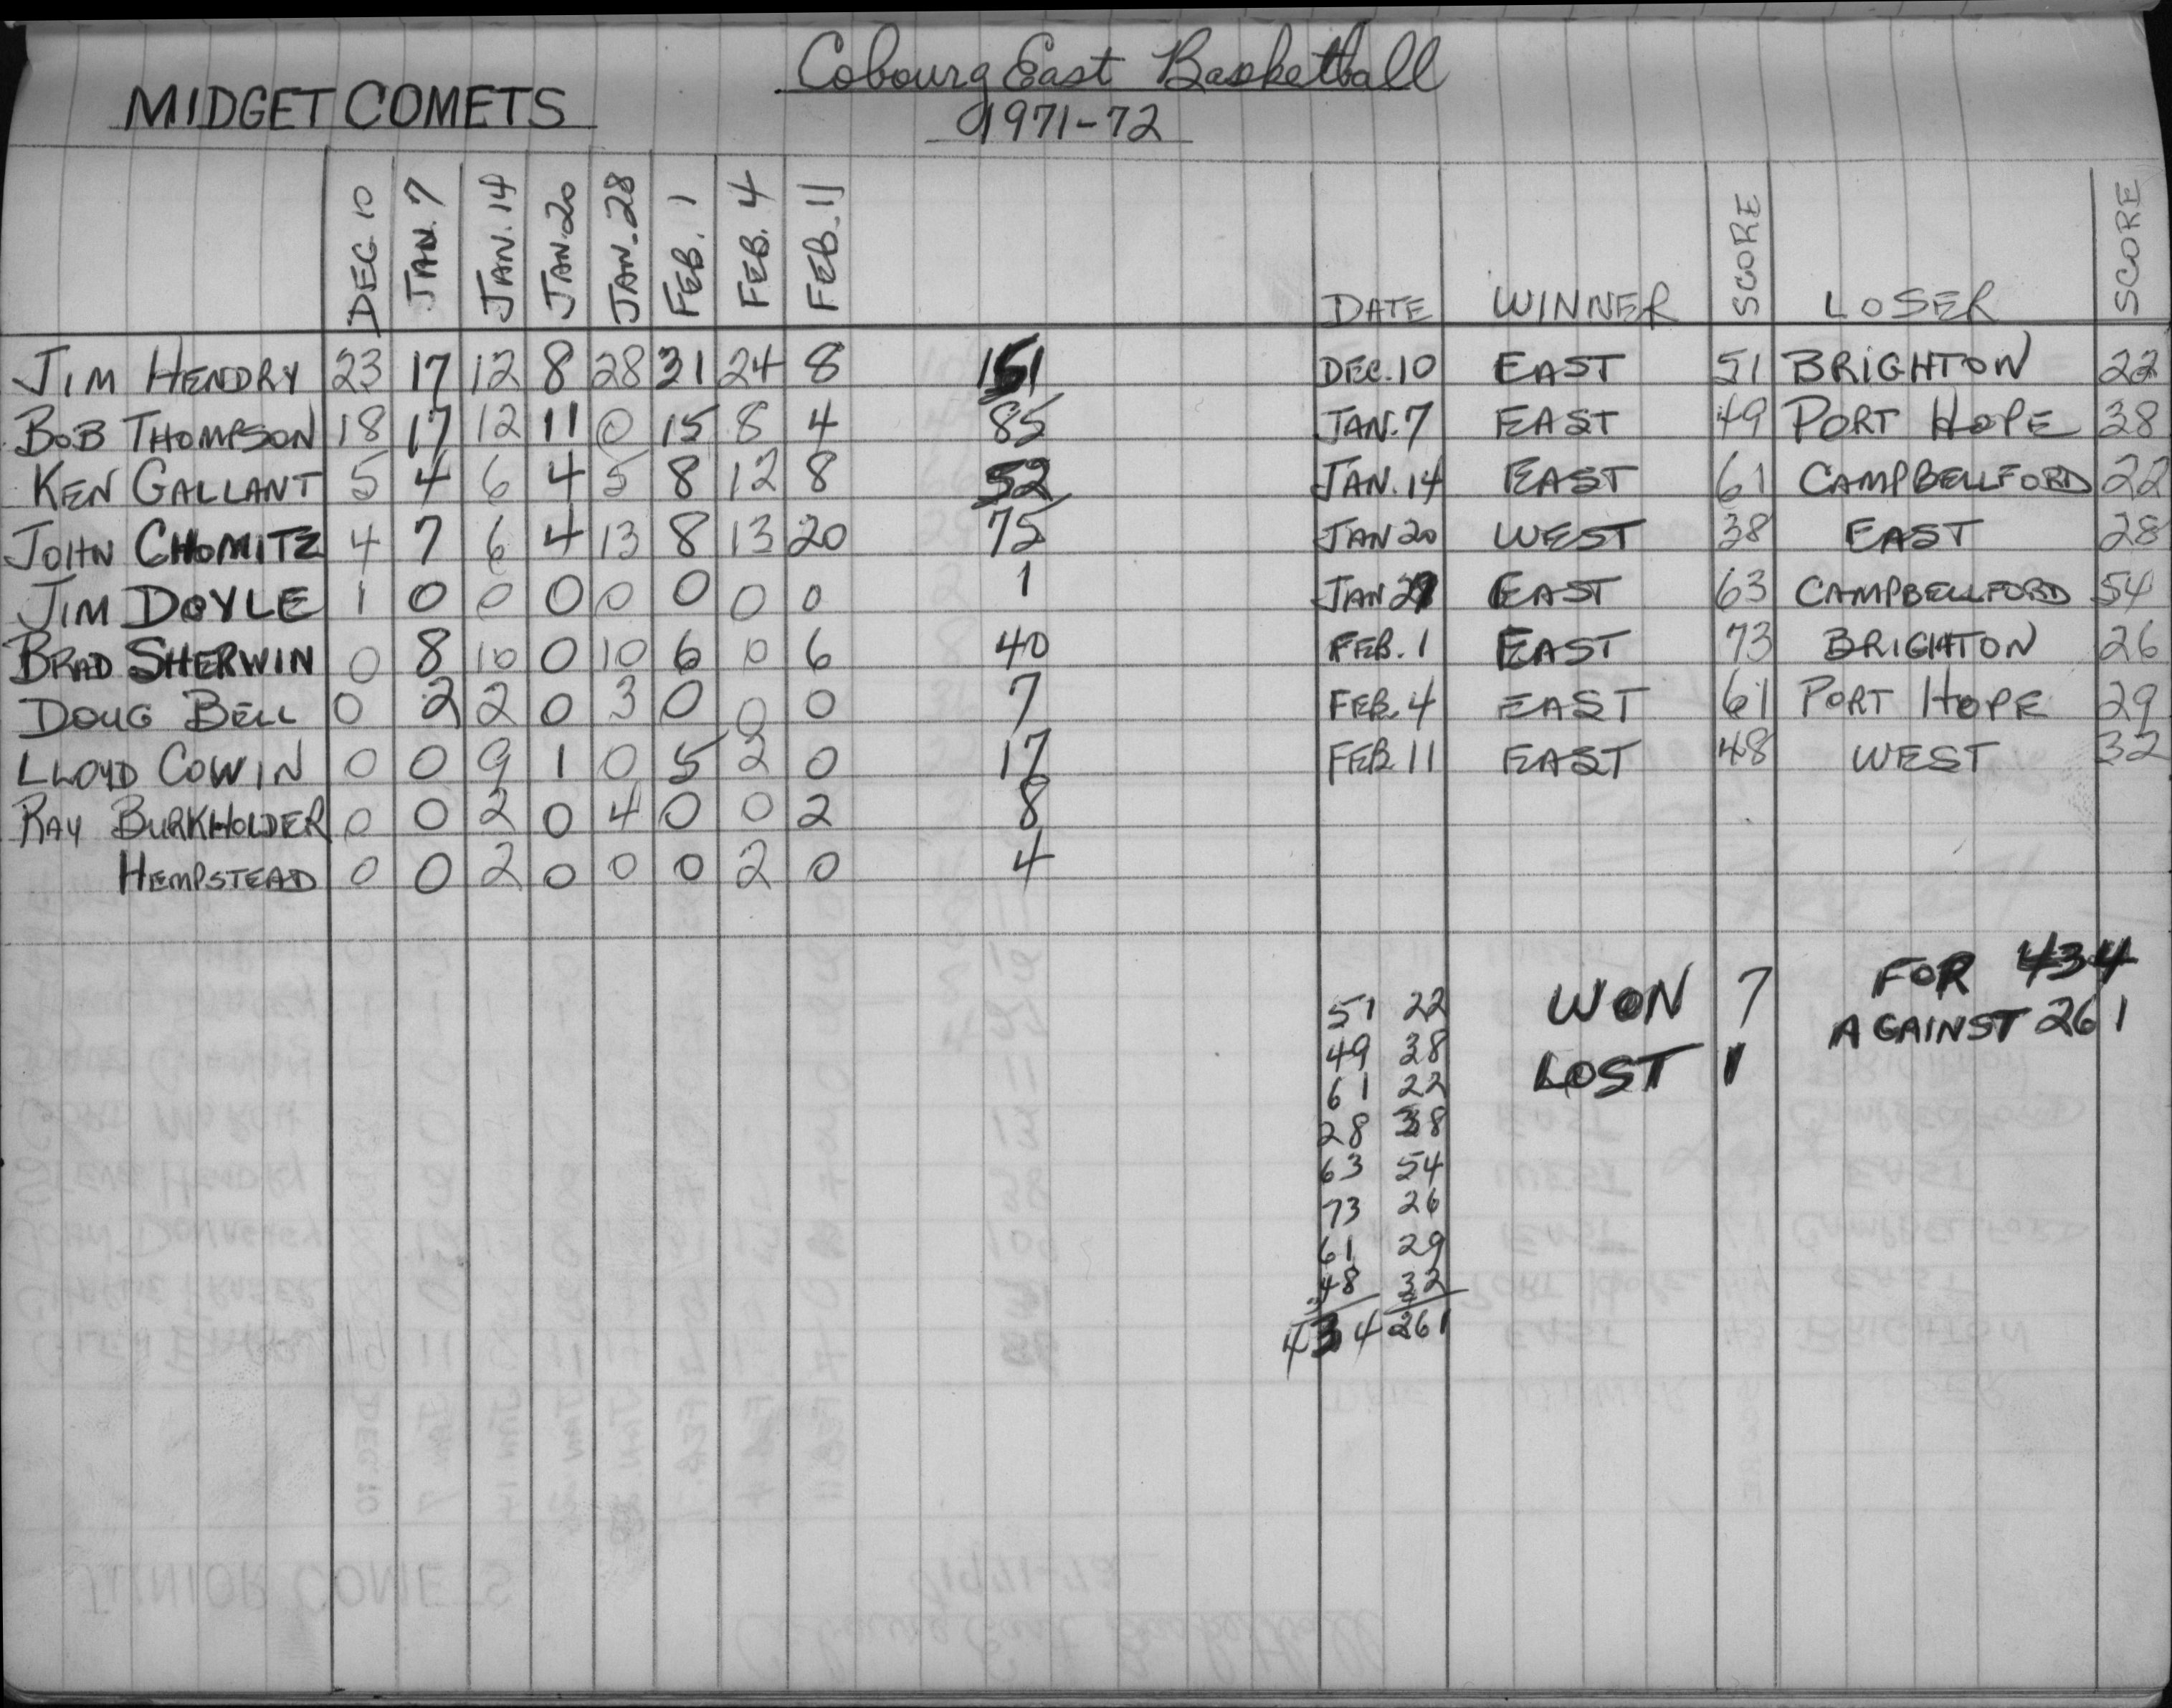 Cobourg East Basketball
MIDGET COMETS
1971-72
DEC. 10 JAN. 7 JAN. 14 JAN. 20 JAN. 28 FEB. 1 FEB. 4 FEB. 11 DATE WINNER SCORE LOSER SCORE
JIM HENDRY 23 17 12 8 28 31 24 8 151 DEC. 10 EAST 51 BRIGHTON 22
BOB THOMPSON 18 17 12 11 0 15 8 4 85 JAN. 7 EAST 49 PORT HOPE 38
KEN GALLANT 5 4 6 4 5 8 12 8 52 JAN. 14 EAST 61 CAMPBELLFORD 22
JOHN CHOMITZ 4 7 6 4 13 8 13 20 75 JAN 20 WEST 38 EAST 28
JIM DOYLE 1 0 0 0 0 0 0 0 1 JAN EAST 63 CAMPBELLFORD 54
BRAD SHERWIN 0 8 10 0 10 6 0 6 40 FEB. 1 EAST 73 BRIGHTON 26
DOUG BELL 0 2 2 0 3 0 0 0 7 FEB. 4 EAST 61 PORT HOPE 29
LLOYD COWIN 0 0 9 1 0 5 2 0 17 FEB. 11 EAST 48 WEST 32
RAY BURKHOLDER 0 0 2 0 4 0 0 2 8
HEMPSTEAD 0 0 2 0 0 0 2 0 4
WON 7 FOR 434
LOST 1 AGAINST 261
51 22
49 38
61 22
28 38
63 54
73 26
61 29
48 32
434 261